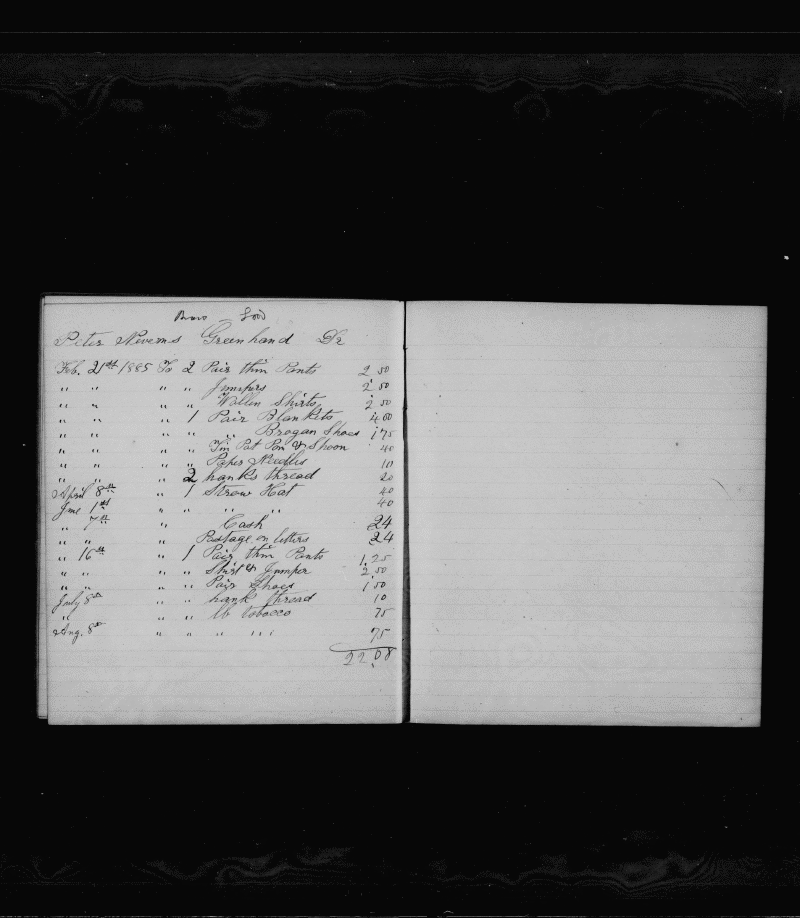 Brava — Good
Peter Nivems Greenhand Dr
Feb. 21st 1885 To 2 Pair thin Pants 2 50
" " " " Jumpers 2 50
" " " " Wollin Shirts 2 50
" " " 1 Pair Blankits 4 00
" " " " " Brogan Shoes 1 75
" " " " Tin Pot Pan & Spoon 40
" " " " Paper Needles 10
" " " 2 hanks thread 20
April 8th " 1 Strow Hat 40
June 1st " " " " 40
" 7th " Cash 24
" " " Postage on letters 24
" 16th " 1 Pair thin Pants 1,25
" " " " Shirt & Jumper 2 50
" " " " Pair Shoes 1 50
July 8th " " hank thread 10
" " " lb tobacco 75
Aug. 8th " " " " 75
22,08